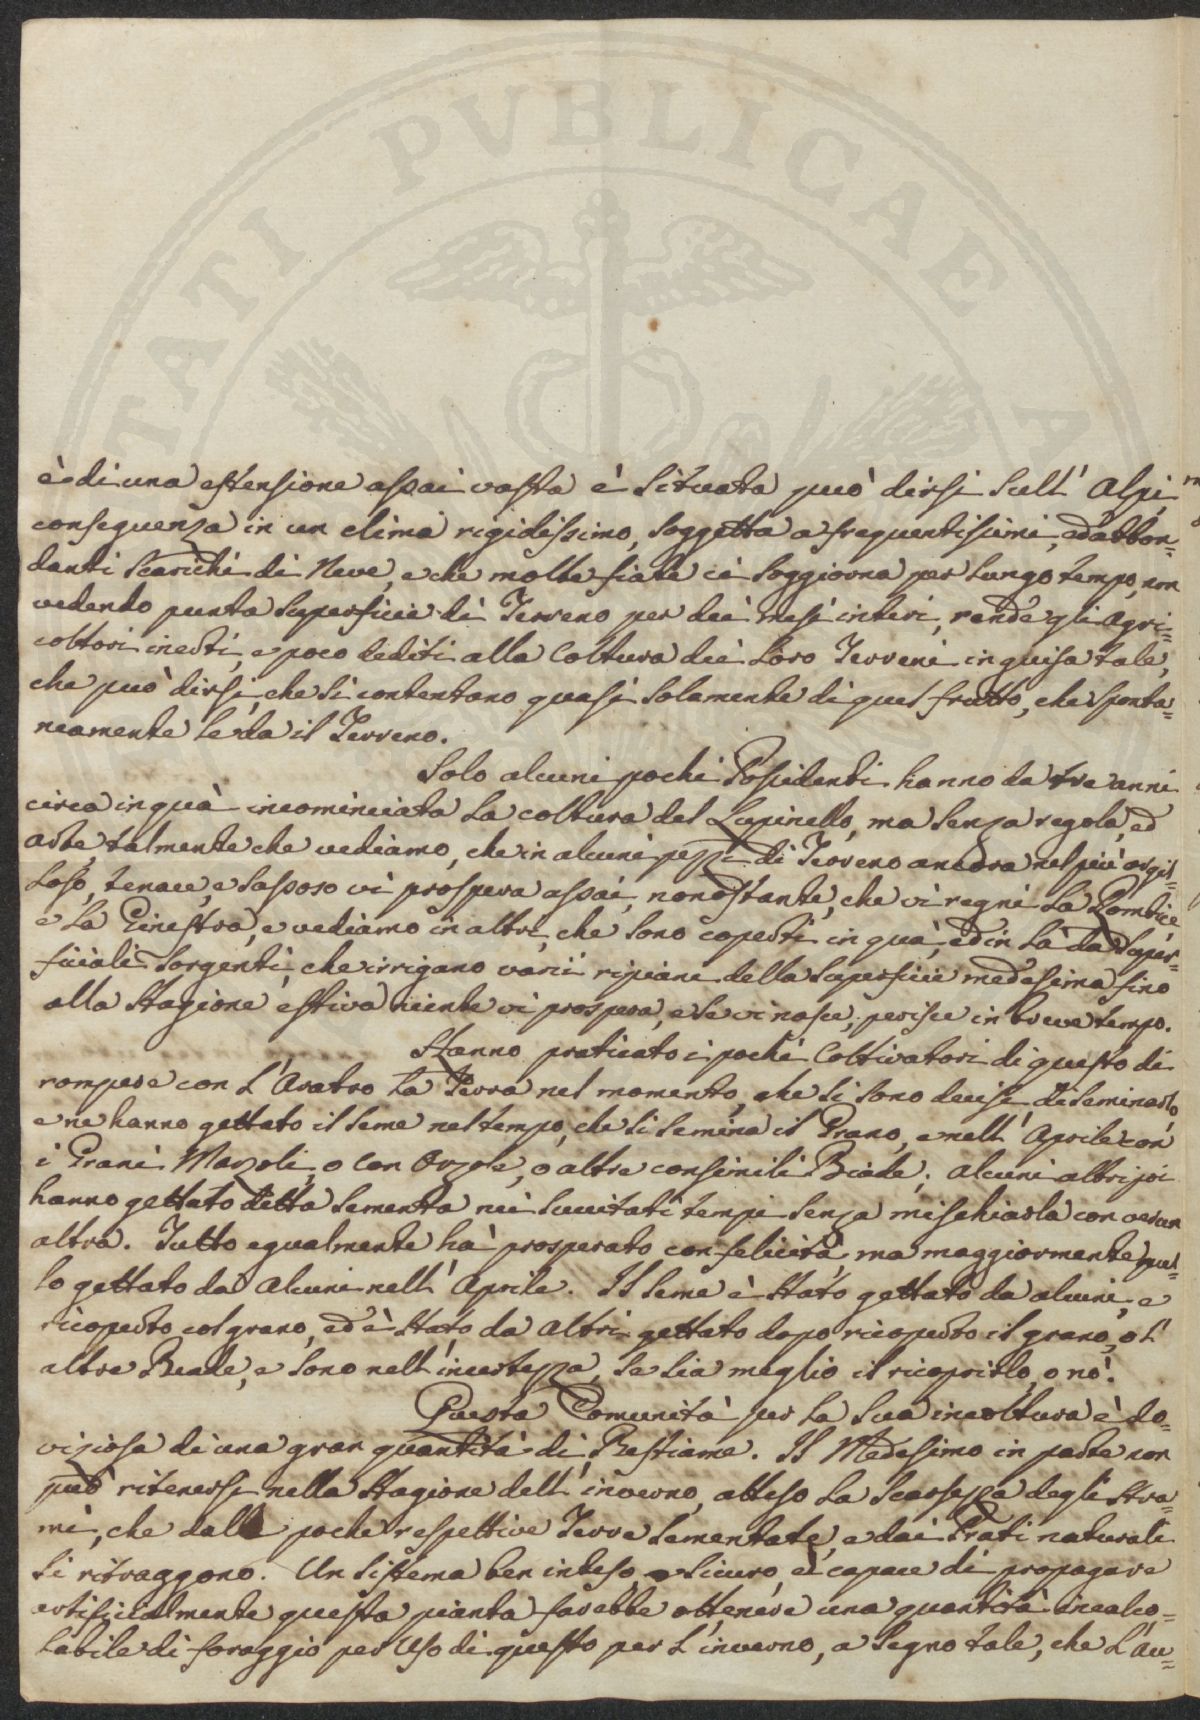 PROSPERITATI PUBLICAE A
è di una estensione assai vasta è situata può dirsi sull' Alpi,
conseguenza in un clima rigidissimo, soggetta a frequentissimi, ed abbon=
danti scarichi di Neve, e che molte fiate ci soggiorna per lungo tempo, non
vedendo punta superficie di Terreno per dei mesi interi, rende gli Agri=
coltori inerti, e poco dediti alla Coltura dei loro Terreni in guisa tale,
che può dirsi, che si contentano quasi solamente di quel frutto, che sponta=
neamente le da il Terreno.
Solo alcuni pochi Possidenti hanno da tre anni
circa in quà incominciata la coltura del Lupinello, ma senza regola, ed
arte, talmente che vediamo, che in alcuni pezzi di Terreno ancora nel più argil=
loso, tenace, e sassoso vi prospera assai, nonostante, che vi regni la Rombice
e la Ginestra, e vediamo in altri, che sono coperti in quà, ed in là da super=
ficiali sorgenti, che irrigano varii ripiani della superficie medesima fino
alla stagione estiva niente vi prospera, e se vi nasce, perisce in breve tempo.
Hanno praticato i pochi Coltivatori di questo di
rompere con l'Aratro la Terra nel momento, che si sono decisi di seminarlo,
e ne hanno gettato il seme nel tempo, che si semina il Grano, e nell' Aprile con
i Grani Marzoli, o con Orzole, o altre consimili Biade; alcuni altri poi
hanno gettato detta sementa nei suscitati tempi senza mischiarla con verun
altra. Tutto egualmente hà prosperato con felicità, ma maggiormente quel=
lo gettato da alcuni nell' Aprile. Il seme è stato gettato da alcuni, e
ricoperto col grano, ed è stato da altri gettato dopo ricoperto il grano, o l'
altre Biade, e sono nell' incertezza, se sia meglio il ricoprirlo, o nò.
Questa Comunità per la sua incoltura è do=
viziosa di una gran quantità di Bestiame. Il Medesimo in parte non
può ritenersi nella stagione dell' inverno, atteso la scarsezza degli stra=
mi, che dalle poche respettive Terre sementate, e dai Prati naturali
si ritraggono. Un sistema ben inteso, e sicuro, e capace di propagare
artificialmente questa pianta farebbe ottenere una quantità incalco=
labile di foraggio per uso di questo per l'inverno, a segno tale, che l'au=